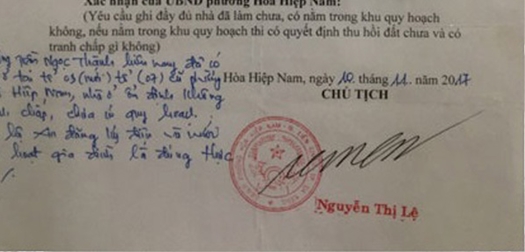 Xác nhận của UBND phường Hòa Hiệp Nam:
(Yêu cầu ghi đầy đủ nhà đã làm chưa, có nằm trong khu quy hoạch
không, nếu nằm trong khu quy hoạch thì có quyết định thu hồi đất chưa và có
tranh chấp gì không)
Ngọc Thành hiện nay đã có
ở tại tổ 03 (mới) tổ (07) cũ phường
Hiệp Nam, nhà ở ổn định không
chấp, chưa quy hoạch
là xin đăng ký điện và nước
hoạt gia đình là đúng thực
Hòa Hiệp Nam, ngày 10 tháng 11 năm 2017
CHỦ TỊCH
Nguyễn Thị Lệ